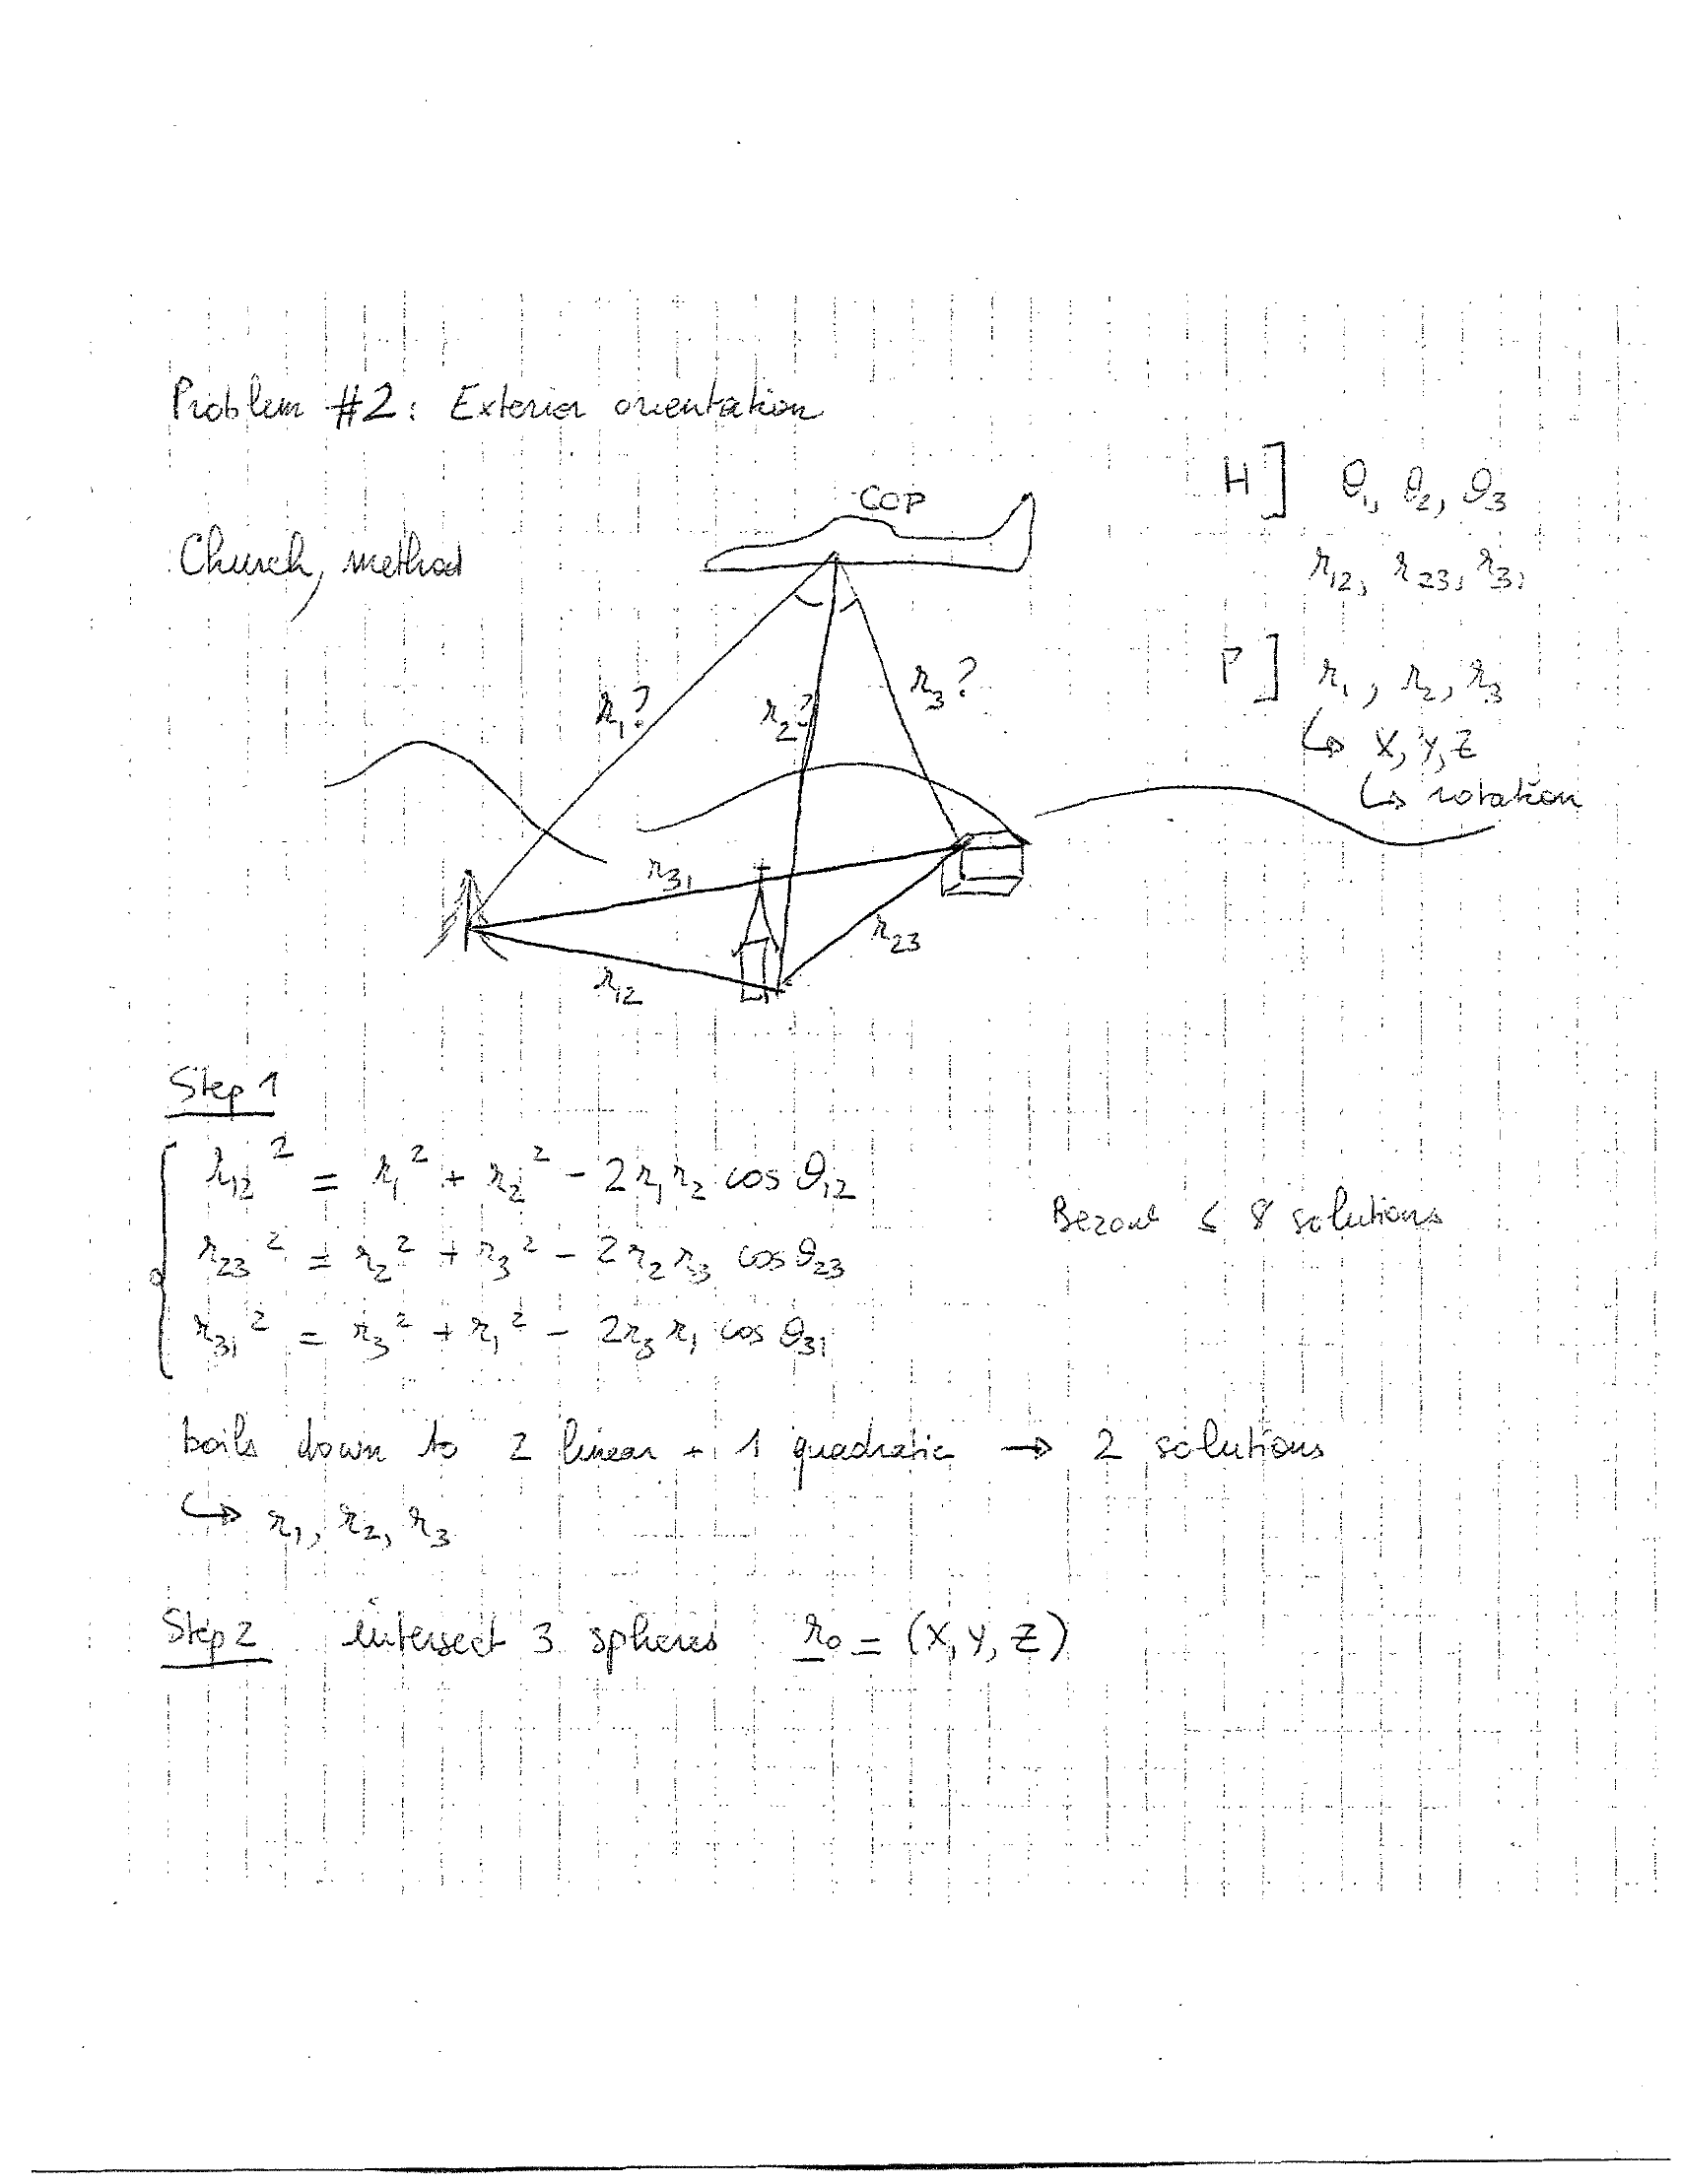 Problem #2: Exterior orientation
Church, method
COP
H] θ₁, θ₂, θ₃
r₁₂, r₂₃, r₃₁
P] r₁, r₂, r₃
↳ X, Y, Z
↳ rotation
r₁?
r₂?
r₃?
r₃₁
r₂₃
r₁₂
Step 1
r₁₂² = r₁² + r₂² - 2r₁r₂ cos θ₁₂
r₂₃² = r₂² + r₃² - 2r₂r₃ cos θ₂₃
r₃₁² = r₃² + r₁² - 2r₃r₁ cos θ₃₁
Bezout ≤ 8 solutions
boils down to 2 linear + 1 quadratic → 2 solutions
↳ r₁, r₂, r₃
Step 2 intersect 3 spheres r₀ = (X, Y, Z)